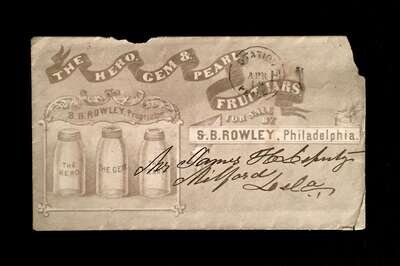 THE HERO, GEM & PEARL
FRUIT JARS
FOR SALE BY
S. B. ROWLEY, Proprietor
S. B. ROWLEY, Philadelphia.
STATION
APR
THE HERO
THE GEM
Mr James H Deputy
Milford
Dela